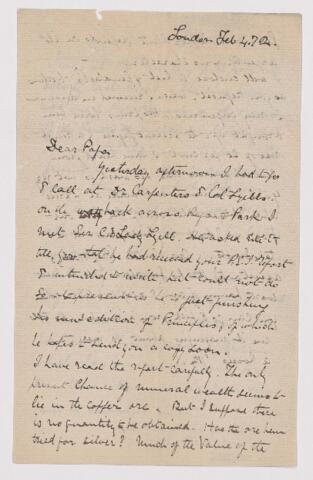 London Feb 4.
Dear Papa
Yesterday afternoon I had to go
& call at Dr Carpenters & Col Lyells
on the back across Regent Park I
met Sir C Lyell. He asked me to
tell you that he had received your Report
& intended to write but could not do
so as he is just finishing
his new edition of Principles, of which
he hopes to send you a copy soon.
I have read the report carefully. The only
present chance of mineral wealth seems to
lie in the copper ore. But I suppose there
is no quantity to be obtained. Has the ore been
tried for silver? Much of the value of the